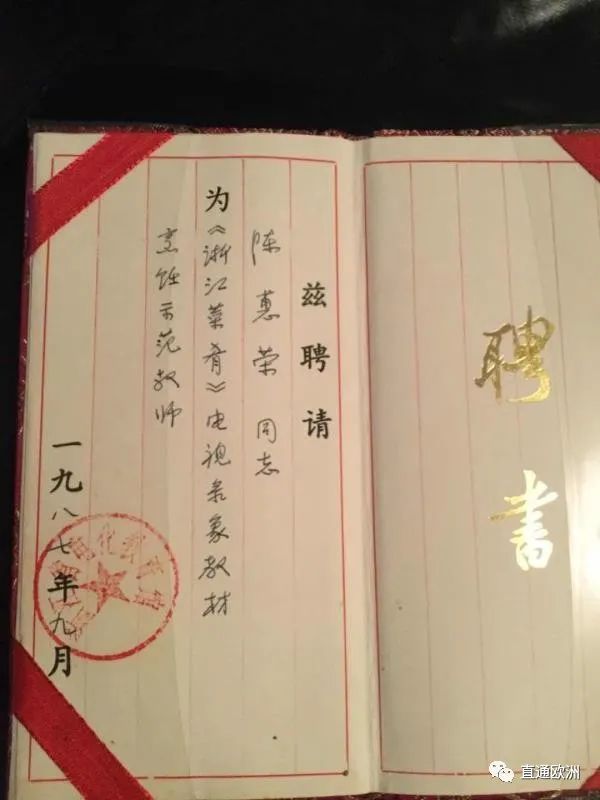 聘书
兹聘请
陈惠荣 同志
为《浙江菜肴》电视录象教材
烹饪示范教师
一九八七年九月
直通欧洲